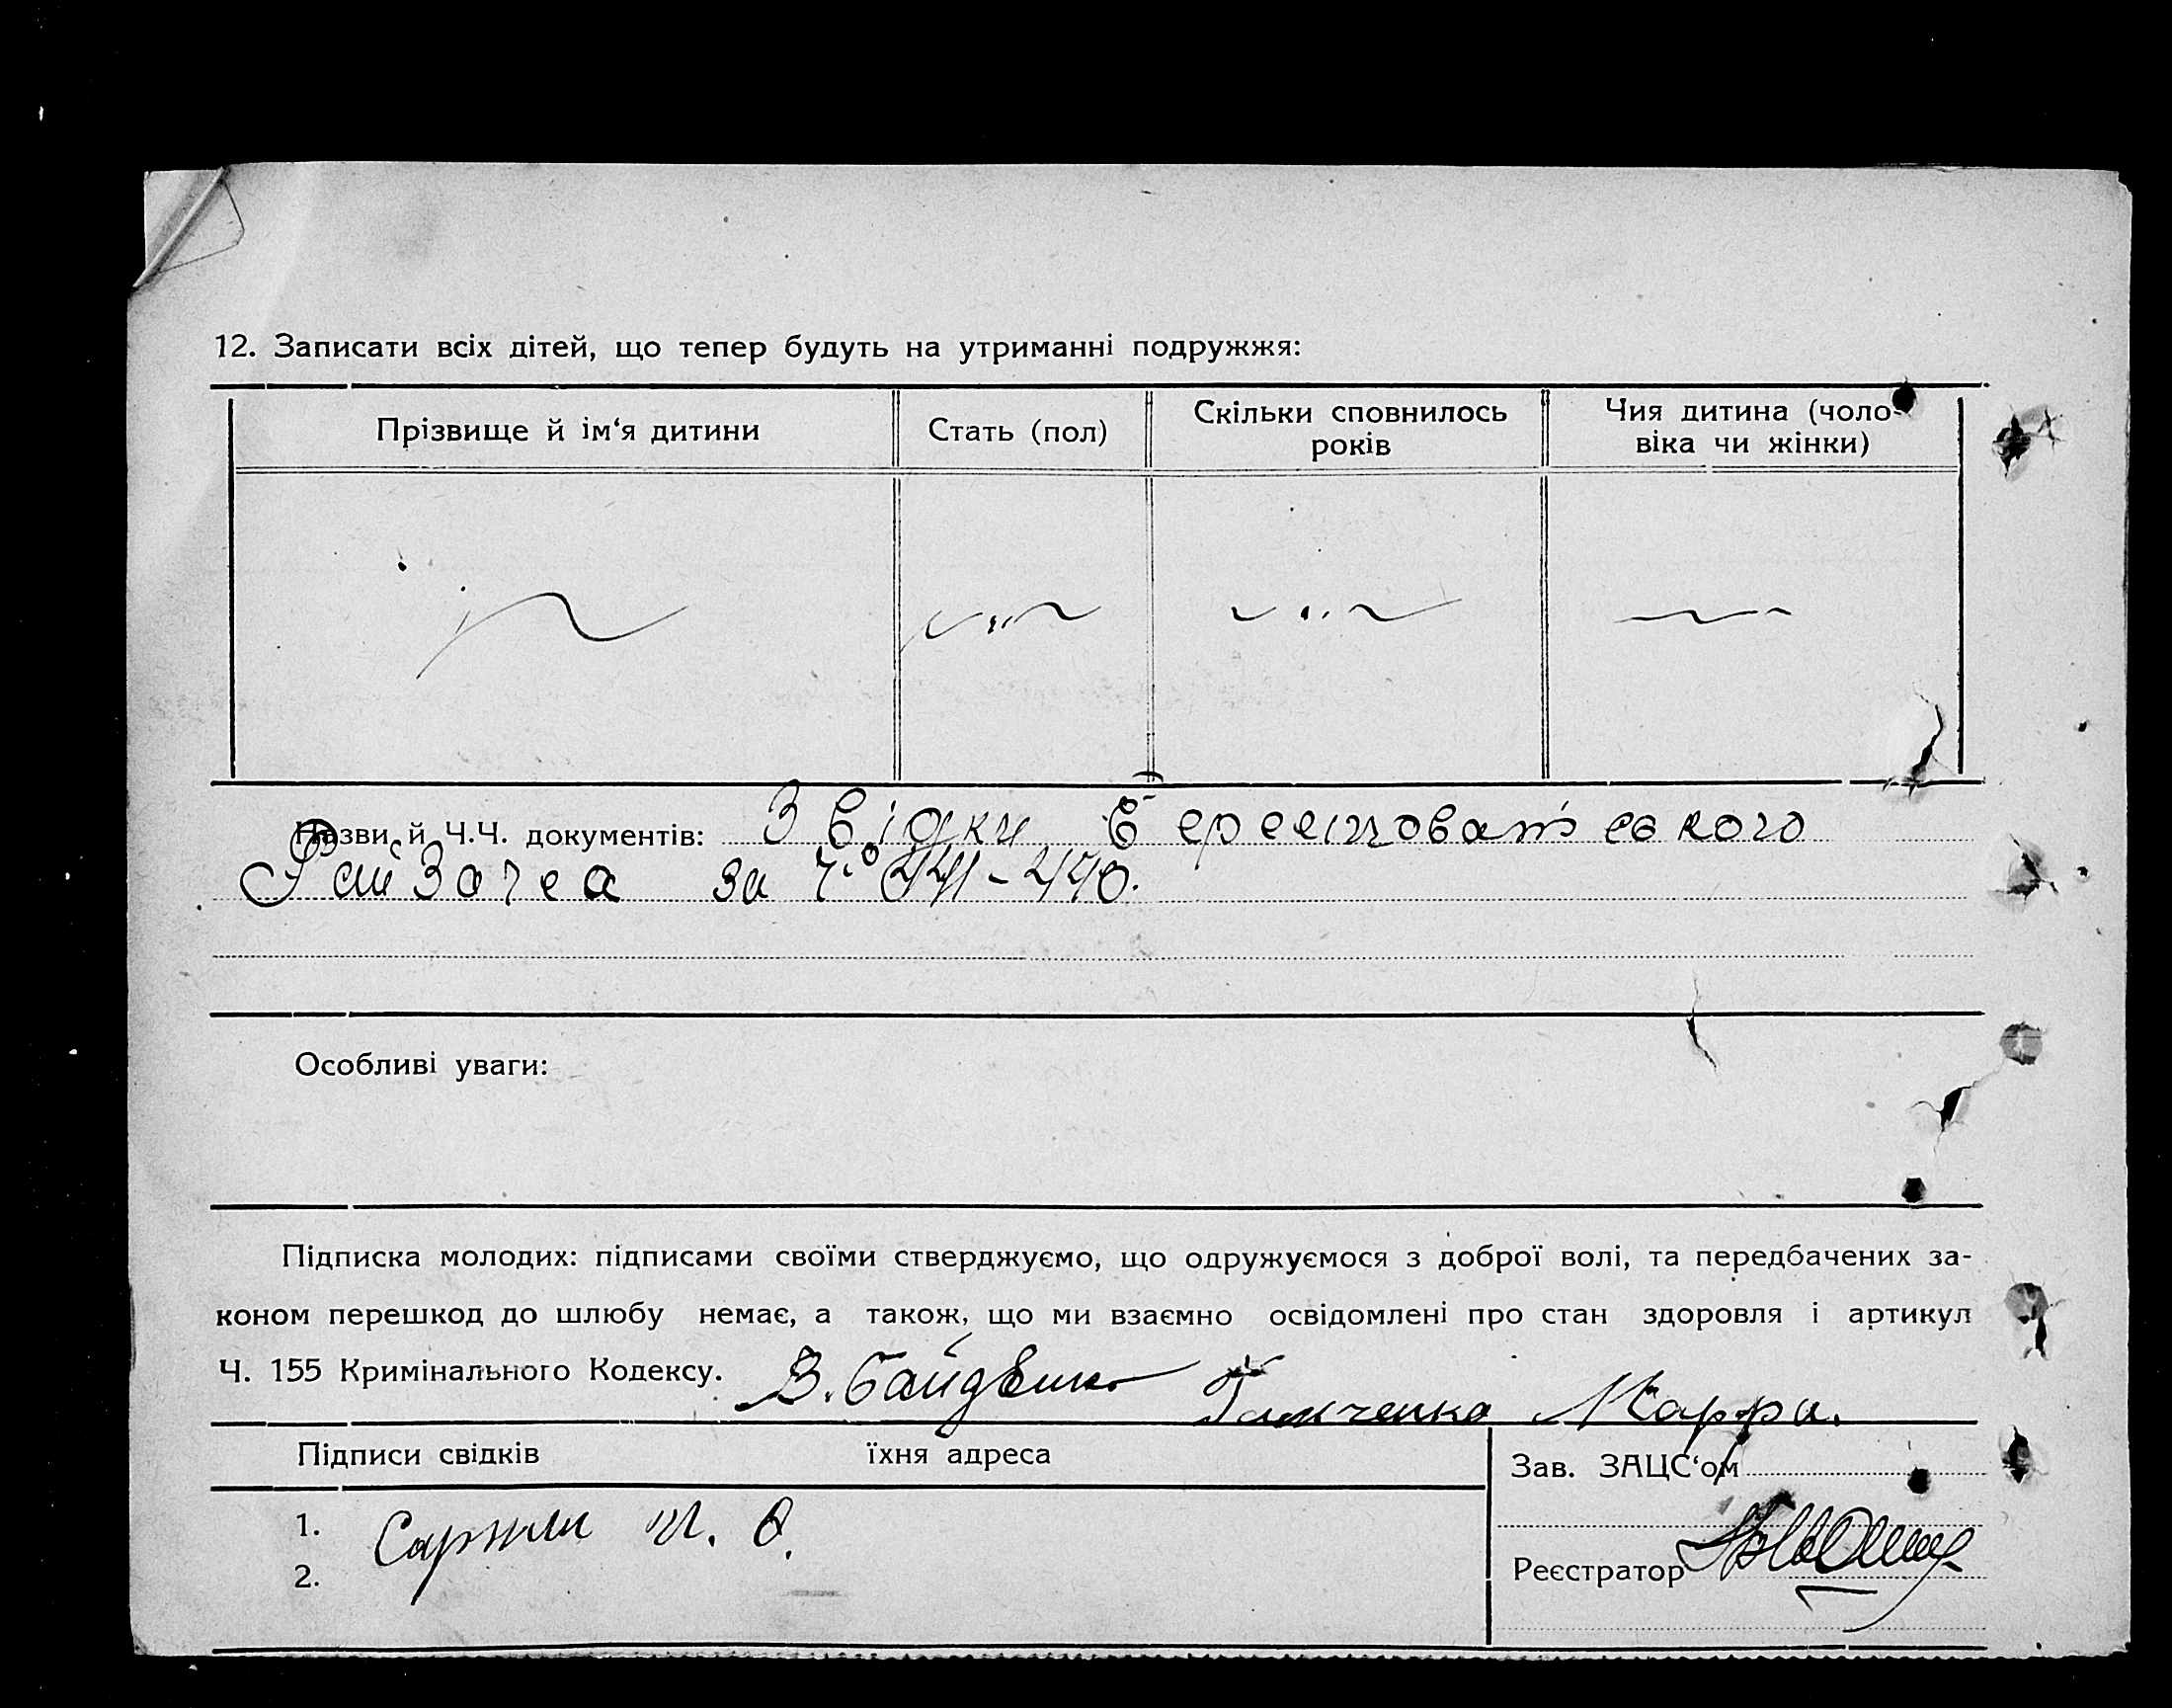 12. Записати всіх дітей, що тепер будуть на утриманні подружжя:
Прізвище й ім‘я дитини
Стать (пол)
Скільки сповнилось
років
Чия дитина (чоло-
віка чи жінки)
Назви й Ч.Ч. документів: Звідки
за
Особливі уваги:
Підписка молодих: підписами своїми стверджуємо, що одружуємося з доброї волі, та передбачених за-
коном перешкод до шлюбу немає, а також, що ми взаємно освідомлені про стан здоровля і артикул
Ч. 155 Кримінального Кодексу. В.
Підписи свідків
їхня адреса
Зав. ЗАЦС‘ом
1.
2.
Реєстратор